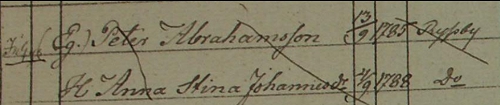 Eg.) Peter Abrahamsson 13/9 1785 Ryssby
H Anna Stina Johannesdr 1788 Do